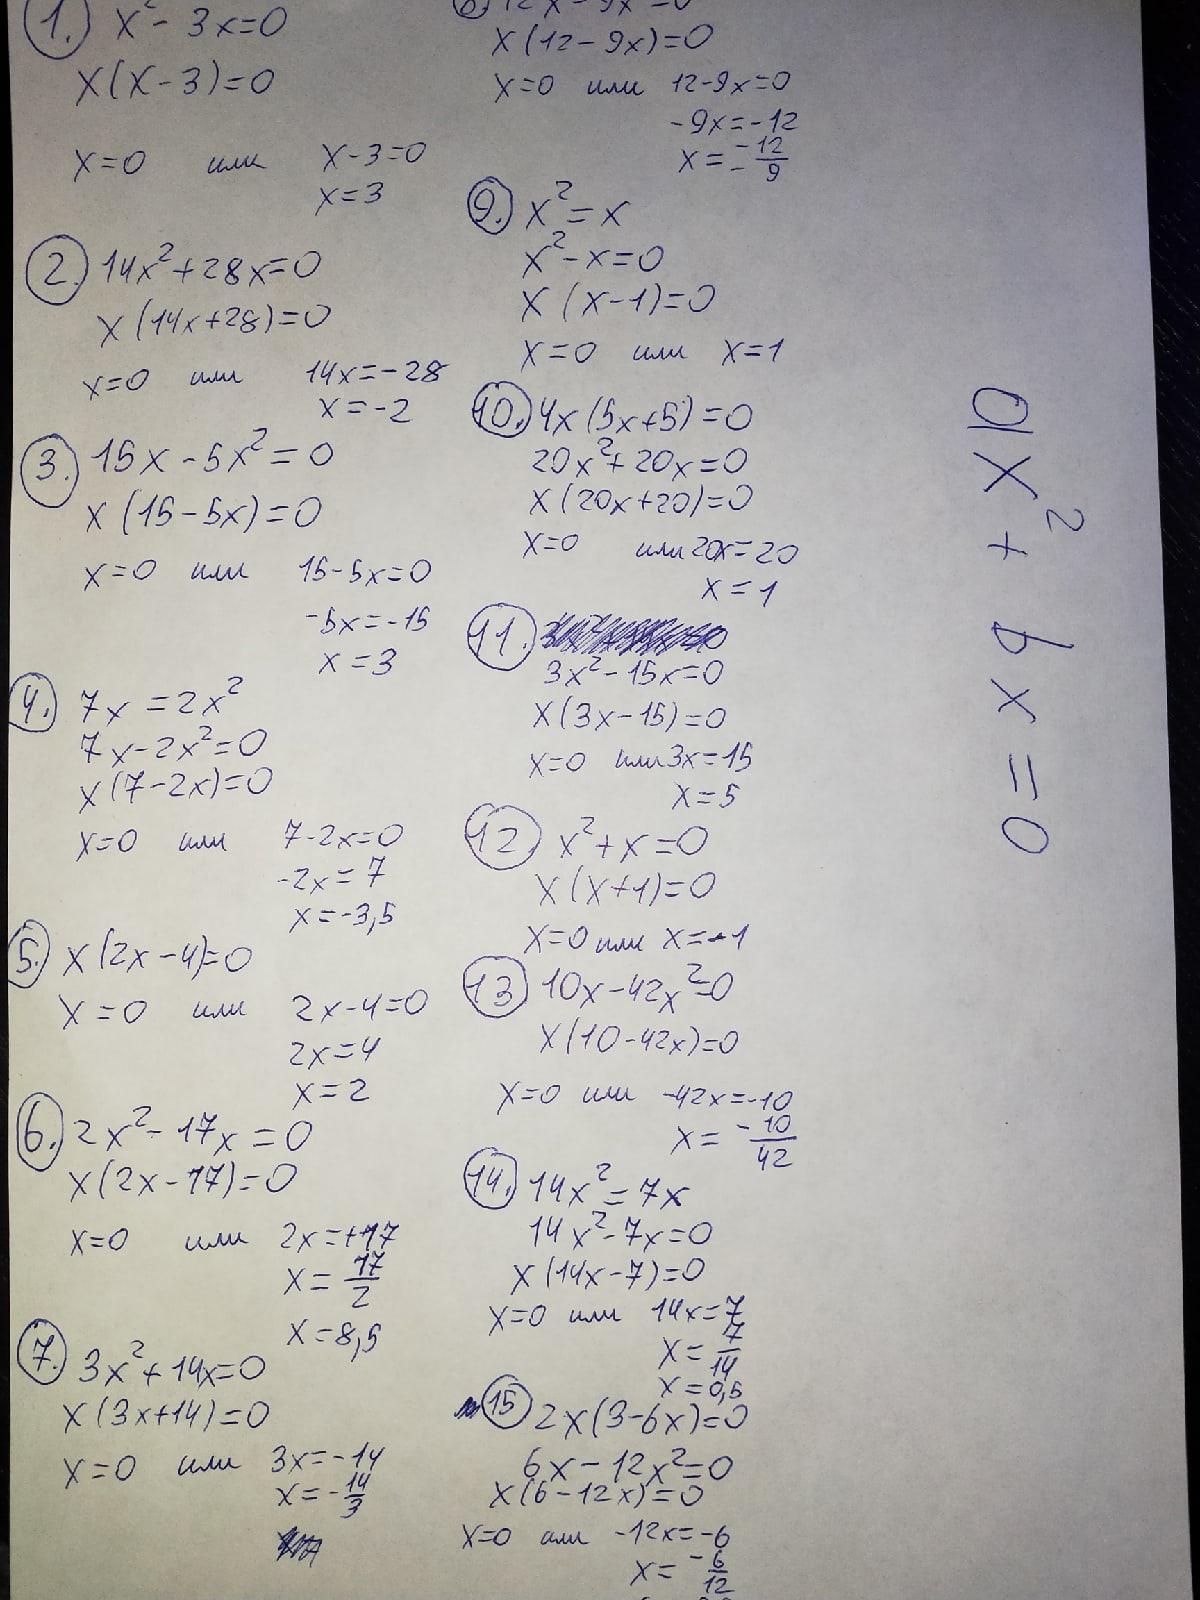 1. x² - 3x = 0
x(x - 3) = 0
x=0 или x - 3 = 0
x = 3
2. 14x² + 28x = 0
x(14x + 28) = 0
x=0 или 14x = -28
x = -2
3. 15x - 5x² = 0
x(15 - 5x) = 0
x=0 или 15 - 5x = 0
-5x = -15
x = 3
4. 7x = 2x²
7x - 2x² = 0
x(7 - 2x) = 0
x=0 или 7 - 2x = 0
-2x = 7
x = -3,5
5. x(2x - 4) = 0
x = 0 или 2x - 4 = 0
2x = 4
x = 2
6. 2x² - 17x = 0
x(2x - 17) = 0
x=0 или 2x = +17
x = 17/2
x = 8,5
7. 3x² + 14x = 0
x(3x + 14) = 0
x=0 или 3x = -14
x = -14/3
12x - 9x² = 0
x(12 - 9x) = 0
x=0 или 12 - 9x = 0
-9x = -12
x = -12/-9
9. x² = x
x² - x = 0
x(x - 1) = 0
x = 0 или x = 1
10. 4x(5x + 5) = 0
20x² + 20x = 0
x(20x + 20) = 0
x=0 или 20x = 20
x = 1
11.
3x² - 15x = 0
x(3x - 15) = 0
x=0 или 3x = 15
x = 5
12 x² + x = 0
x(x + 1) = 0
x=0 или x = -1
13 10x - 42x² = 0
x(10 - 42x) = 0
x=0 или -42x = -10
x = -10/42
14. 14x² = 7x
14x² - 7x = 0
x(14x - 7) = 0
x=0 или 14x = 7
x = 7/14
x = 0,5
15 2x(3 - 6x) = 0
6x - 12x² = 0
x(6 - 12x) = 0
x=0 или -12x = -6
x = -6/12
ax² + bx = 0